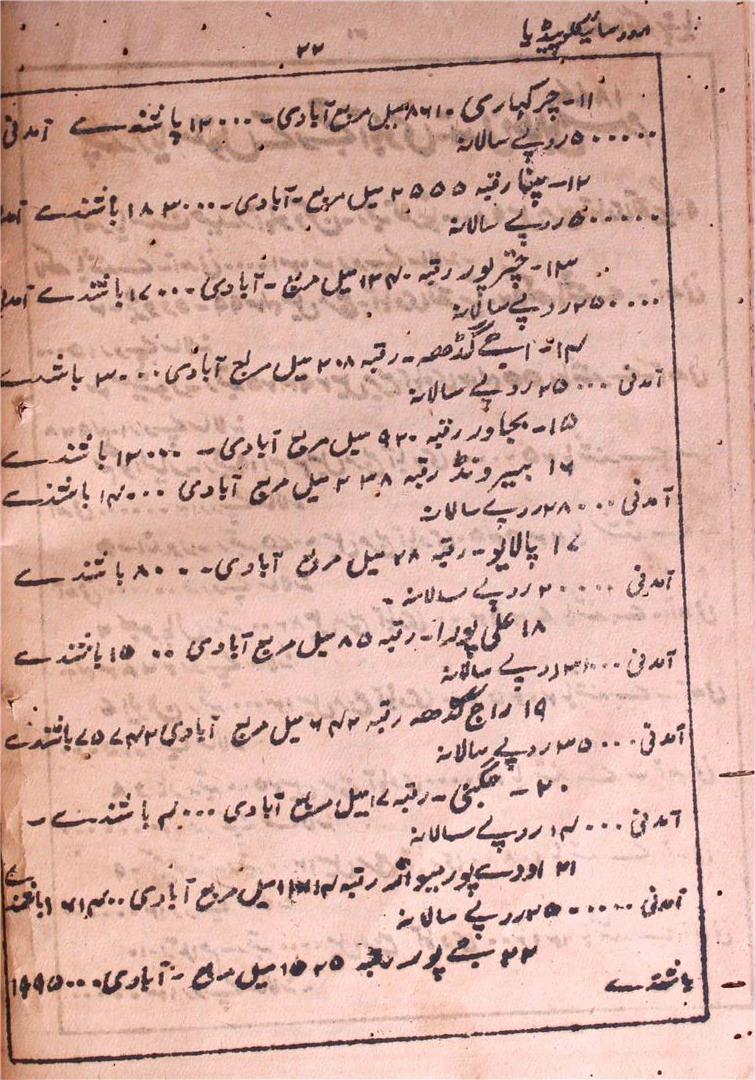 اردو سائیکلوپیڈیا
۲۲
۱۱۔ چرکہاری ۸۶۱۰ میل مربع آبادی۔ ۱۳۰۰۰۰ باشندے آمدنی
۵۰۰۰۰۰ روپے سالانہ
۱۲۔ پنا رقبہ ۲۵۵۵ میل مربع۔ آبادی۔ ۱۸۳۰۰۰ باشندے
۵۰۰۰۰۰ روپے سالانہ
۱۳۔ چترپور رقبہ ۱۲۴۰ میل مربع۔ آبادی۔ ۱۷۰۰۰ باشندے
۲۵۰۰۰۰ روپے سالانہ
۱۴۔ اجے گڈھ۔ رقبہ ۲۰۸ میل مربع آبادی ۳۰۰۰۰ باشندے
آمدنی ۲۵۰۰۰ روپے سالانہ
۱۵۔ بجاور رقبہ ۹۲۰ میل مربع آبادی۔ ۱۳۰۰۰ باشندے
۱۶ بیروند رقبہ ۲۳۸ میل مربع آبادی ۱۴۰۰۰ باشندے
آمدنی ۲۸۰۰۰ روپے سالانہ
۱۷ پالدیو۔ رقبہ ۲۸ میل مربع آبادی۔ ۸۰۰۰ باشندے
آمدنی ۲۰۰۰۰ روپے سالانہ۔
۱۸ علی پورا۔ رقبہ ۸۵ میل مربع آبادی ۱۵۰۰۰ باشندے
آمدنی ۳۱۰۰۰ روپے سالانہ
۱۹ راج گڈھ رقبہ ۶۴۲ میل مربع آبادی ۷۵۷۴۲ باشندے
آمدنی ۳۵۰۰۰ روپے سالانہ
۲۰۔ جگنی۔ رقبہ ۱۷ میل مربع آبادی ۴۰۰۰ باشندے۔
آمدنی ۱۴۰۰۰ روپے سالانہ
۲۱ اودے پور میواڑ رقبہ ۱۱۶۱۴ میل مربع آبادی ۱۶۱۴۰۰ باشندے
آمدنی ۲۵۰۰۰۰۰ روپے سالانہ
۲۲ جے پور رقبہ ۱۵۲۵ میل مربع۔ آبادی۔ ۱۹۹۵۰۰۰
باشندے